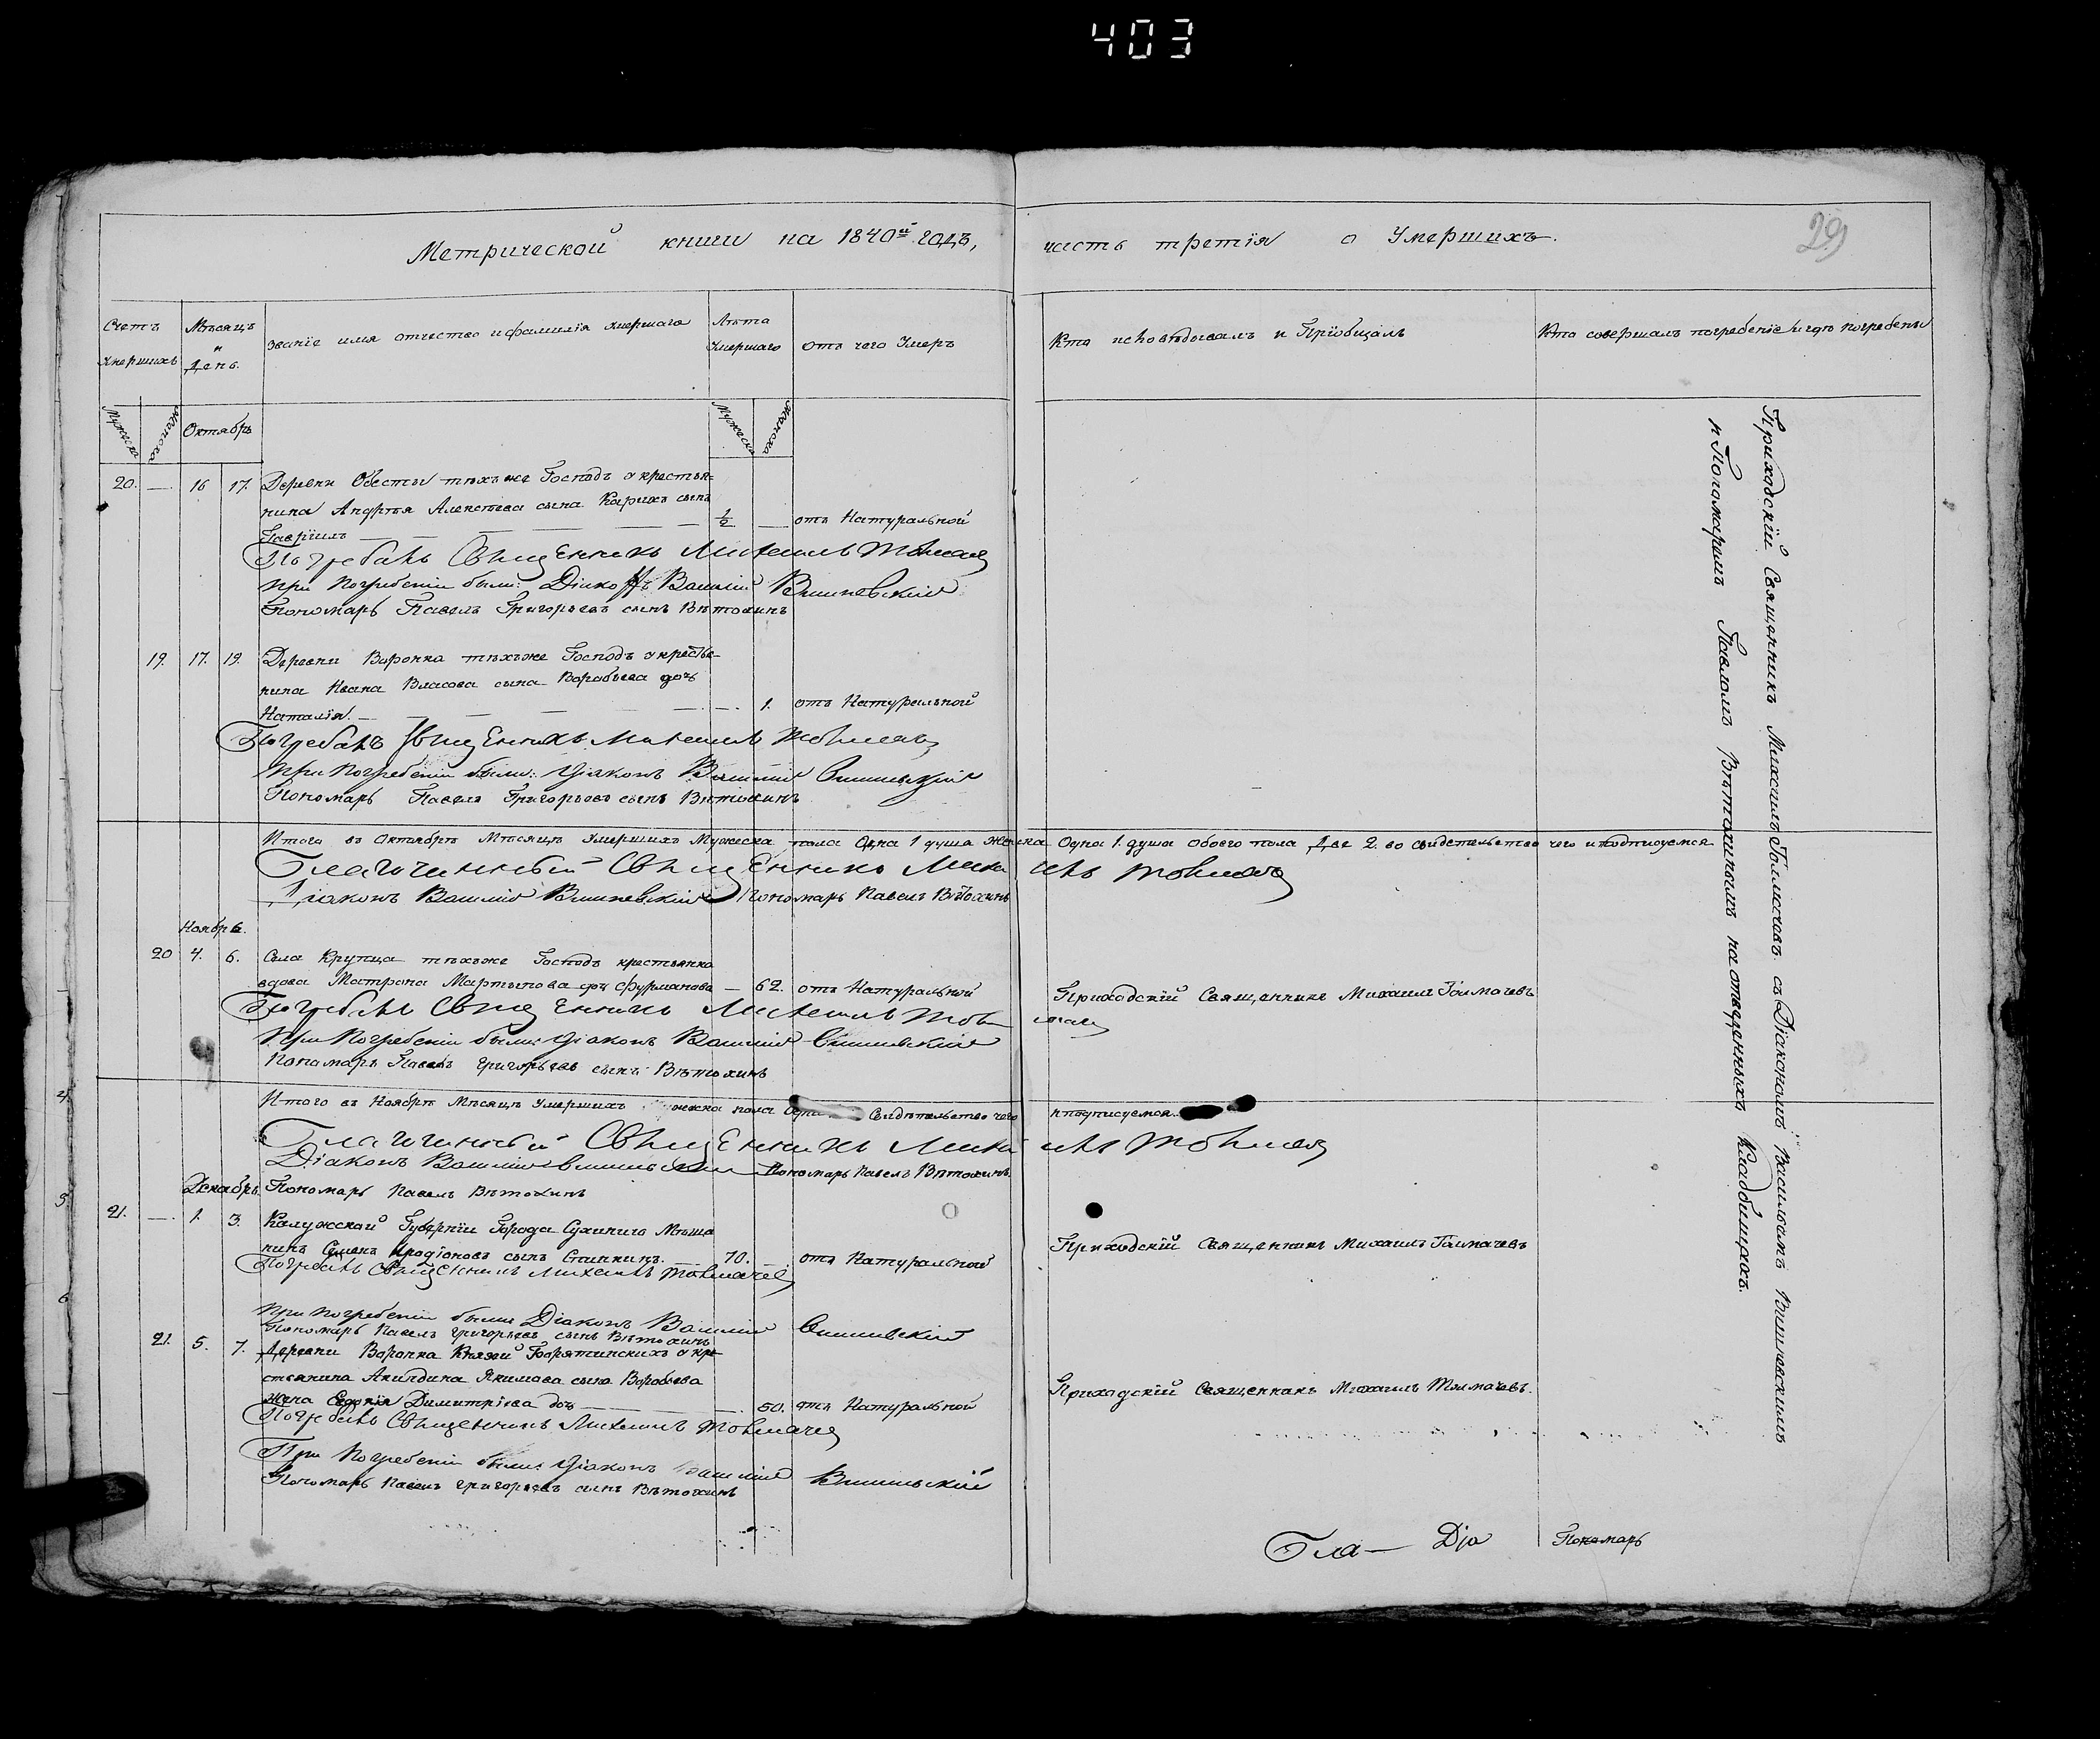 403
29
Метрической книги на 1840й годъ, часть третія о Умершихъ.
Счетъ Умершихъ
Мѣсяцъ и День.
Званіе имя отчество и фамилія умершаго
Лѣта Умершаго
отъ чего Умеръ
Кто исповѣдовалъ и Пріобщалъ
Кто совершалъ погребеніе и гдѣ погребены
Мужеска
Женска
Октябрь
Мужеска
Женска
20. — 16 17. Деревни тѣхъже Господъ крестья-
нина Андрѣя Алексѣева сына сынъ
Гавріилъ — — — — 1/2 — отъ Натуральной
Погребалъ Священникъ Михаилъ
при Погребеніи были: Діаконъ Василій Вишневскій
Пономарь Павелъ Григорьевъ сынъ Вѣтохинъ
19. 17. 19. Деревни Воронка тѣхъже Господъ крестья-
нина Ивана Власова сына Воробьева дочь
Наталія. — — — — — 1. отъ Натуральной
Погребалъ Священникъ Михаилъ
при Погребеніи были: Діаконъ Василій Вишневскій
Пономарь Павелъ Григорьевъ сынъ Вѣтохинъ
Итого въ Октябрѣ Мѣсяцѣ Умершихъ Мужеска пола Одна 1 душа Женска Одна 1. душа Обоего пола Две 2. во свидетельство чего и подписуемся
Благочинный Священникъ Михаилъ
Діаконъ Василій Вишневскій Пономарь Павелъ Вѣтохинъ
Ноябрь.
20 4. 6. Села Крупца тѣхъже Господъ крестьянка
вдова Матрона Мартынова дочь Фурманова — 62. отъ Натуральной
Приходскій Священникъ Михаилъ Толмачевъ
Погребалъ Священникъ Михаилъ
При Погребеніи были: Діаконъ Василій Вишневскій
Пономарь Павелъ Григорьевъ сынъ Вѣтохинъ
Итого въ Ноябрѣ Мѣсяцѣ Умершихъ пола Свидѣтельство чего и подписуемся
Благочинный Священникъ Михаилъ
Діаконъ Василій Вишневскій Пономарь Павелъ Вѣтохинъ
Декабрь. Пономарь Павелъ Вѣтохинъ
21. — 1. 3. Калужской Губерніи Города Сухинича Мѣща
нинъ Семенъ сынъ 70. отъ Натуральной
Приходскій Священникъ Михаилъ Толмачевъ
Погребалъ Священникъ Михаилъ Толмачев
При погребеніи были Діаконъ Василій Вишневскій
Пономарь Павелъ Григорьевъ сынъ Вѣтохинъ
21. 5. 7. Деревни Воронка Князей Борятинскихъ кре
стьянина Акиндина Якимова сына Воробьева
жена Димитріева дочь — — 50. отъ Натуральной
Приходскій Священникъ Михаилъ Толмачевъ.
Погребалъ Священникъ Михаилъ Толмачев
При Погребеніи были: Діаконъ Василій Вишневскій
Пономарь Павелъ Григорьевъ сынъ Вѣтохинъ
Приходскій Священникъ Михаилъ Толмачевъ съ Діакономъ Василіемъ Вишневскимъ
и Понамаремъ Павломъ Вѣтохинымъ на отведенныхъ Кладбищахъ.
Бла— Діа Пономарь